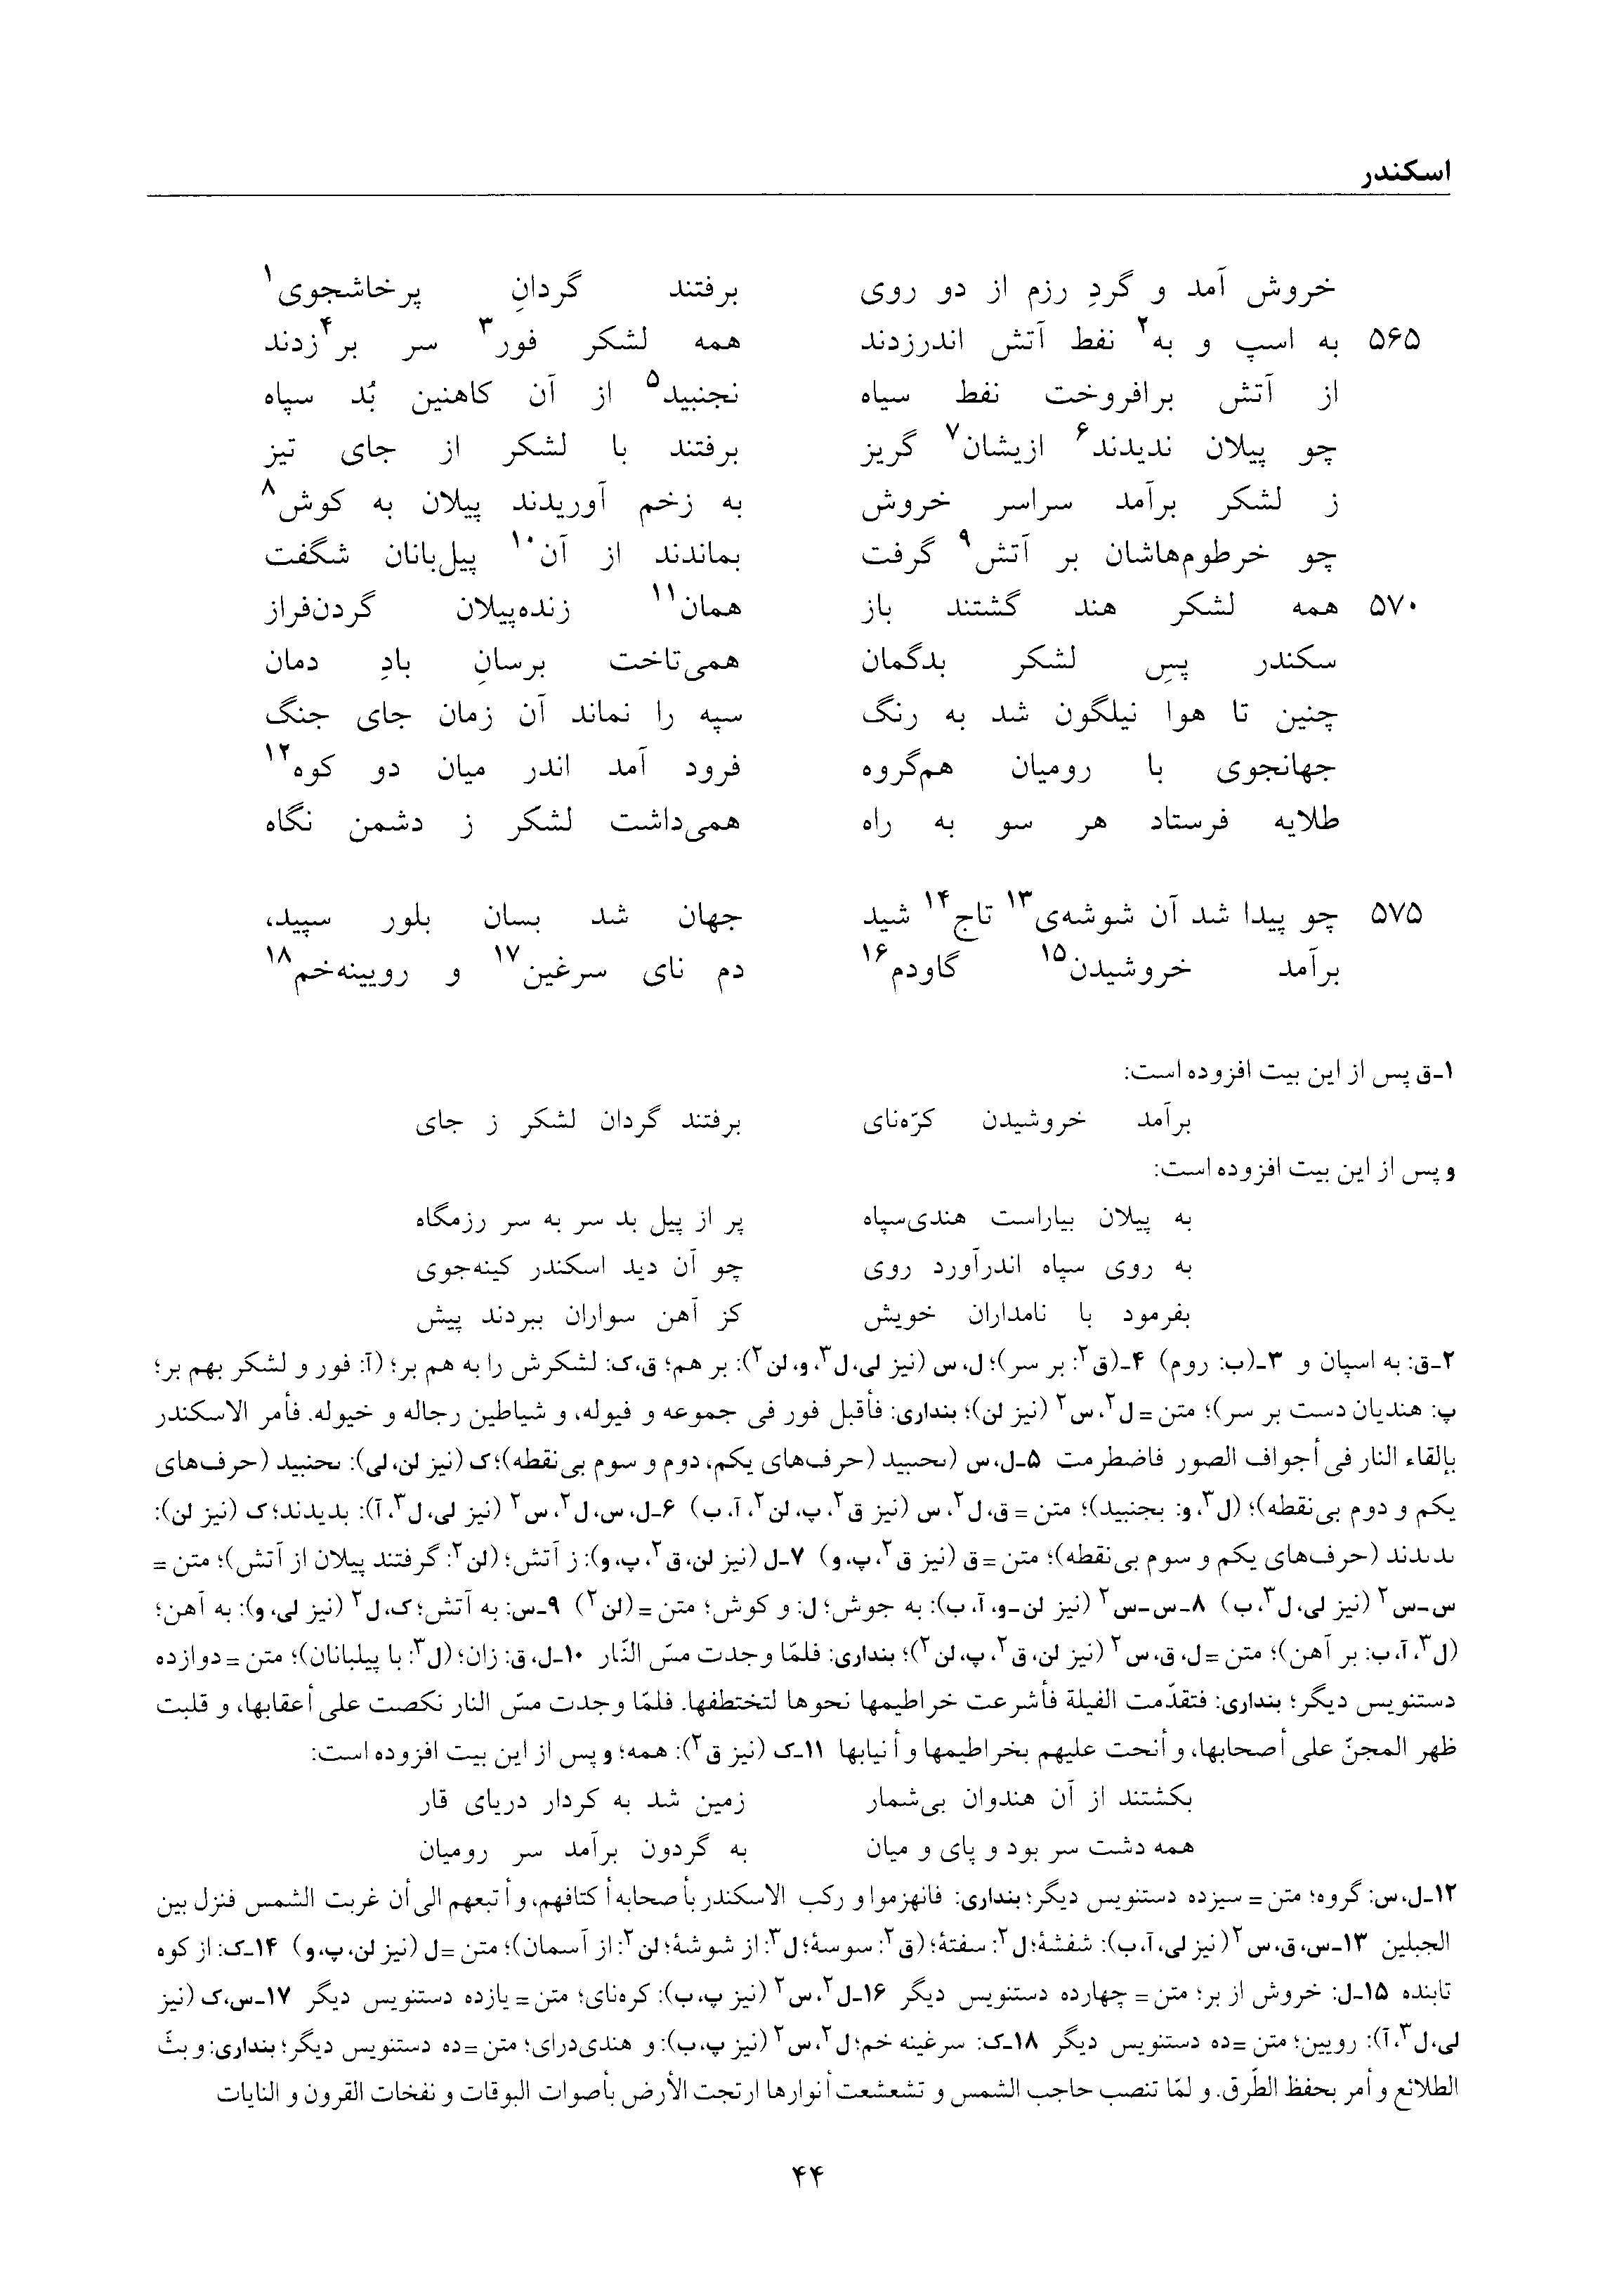 اسکندر
خروش آمد و گردِ رزم از دو روی برفتند گردانِ پرخاشجوی۱
۵۶۵ به اسپ و به۲ نفط آتش اندرزدند همه لشکر فور۳ سر بر۴زدند
از آتش برافروخت نفط سیاه نجنبید۵ از آن کاهنین بُد سپاه
چو پیلان ندیدند۶ ازیشان۷ گریز برفتند با لشکر از جای تیز
ز لشکر برآمد سراسر خروش به زخم آوریدند پیلان به کوش۸
چو خرطوم‌هاشان بر آتش۹ گرفت بماندند از آن۱۰ پیل‌بانان شگفت
۵۷۰ همه لشکر هند گشتند باز همان۱۱ زنده‌پیلان گردن‌فراز
سکندر پسِ لشکر بدگمان همی‌تاخت برسانِ بادِ دمان
چنین تا هوا نیلگون شد به رنگ سپه را نماند آن زمان جای جنگ
جهانجوی با رومیان هم‌گروه فرود آمد اندر میان دو کوه۱۲
طلایه فرستاد هر سو به راه همی‌داشت لشکر ز دشمن نگاه
۵۷۵ چو پیدا شد آن شوشه‌ی۱۳ تاج۱۴ شید جهان شد بسان بلور سپید،
برآمد خروشیدن۱۵ گاودم۱۶ دم نای سرغین۱۷ و رویینه‌خم۱۸
۱ـ ق پس از این بیت افزوده است:
برآمد خروشیدن کرّه‌نای برفتند گردان لشکر ز جای
و پس از این بیت افزوده است:
به پیلان بیاراست هندی‌سپاه پر از پیل بد سر به سر رزمگاه
به روی سپاه اندرآورد روی چو آن دید اسکندر کینه‌جوی
بفرمود با نامداران خویش کز آهن سواران ببردند پیش
۲ـ ق: به اسپان و ۳ـ (ب: روم) ۴ـ (ق۲: بر سر)؛ ل، س (نیز لی، ل۳، و، لن۲): بر هم؛ ق، ک: لشکرش را به هم بر؛ (آ: فور و لشکر بهم بر؛
پ: هندیان دست بر سر)؛ متن = ل۲، س۲ (نیز لن)؛ بنداری: فأقبل فور فی جموعه و فیوله، و شیاطین رجاله و خیوله. فأمر الاسکندر
بإلقاء النار فی أجواف الصور فاضطرمت ۵ـ ل، س (ںحںںد (حرف‌های یکم، دوم و سوم بی‌نقطه)؛ ک (نیز لن، لی): ںحنبید (حرف‌های
یکم و دوم بی‌نقطه)؛ (ل۳، و: بجنبید)؛ متن = ق، ل۲، س (نیز ق۲، پ، لن۲، آ، ب) ۶ـ ل، س، ل۲، س۲ (نیز لی، ل۳، آ): بدیدند؛ ک (نیز لن):
ںدںدند (حرف‌های یکم و سوم بی‌نقطه)؛ متن = ق (نیز ق۲، پ، و) ۷ـ ل (نیز لن، ق۲، پ، و): ز آتش؛ (لن۲: گرفتند پیلان از آتش)؛ متن =
س-س۲ (نیز لی، ل۳، ب) ۸ـ س-س۲ (نیز لن-و، آ، ب): به جوش؛ ل: و کوش؛ متن = (لن۲) ۹ـ س: به آتش؛ ک، ل۲ (نیز لی، و): به آهن؛
(ل۳، آ، ب: بر آهن)؛ متن = ل، ق، س۲ (نیز لن، ق۲، پ، لن۲)؛ بنداری: فلمّا وجدت مسّ النّار ۱۰ـ ل، ق: زان؛ (ل۳: با پیلبانان)؛ متن = دوازده
دستنویس دیگر؛ بنداری: فتقدّمت الفیلة فأشرعت خراطیمها نحوها لتختطفها. فلمّا وجدت مسّ النار نکصت علی أعقابها، و قلبت
ظهر المجنّ علی أصحابها، و أنحت علیهم بخراطیمها و أنیابها ۱۱ـ ک (نیز ق۲): همه؛ و پس از این بیت افزوده است:
بکشتند از آن هندوان بی‌شمار زمین شد به کردار دریای قار
همه دشت سر بود و پای و میان به گردون برآمد سر رومیان
۱۲ـ ل، س: گروه؛ متن = سیزده دستنویس دیگر؛ بنداری: فانهزموا و رکب الاسکندر بأصحابه أکتافهم، و أتبعهم الی أن غربت الشمس فنزل بین
الجبلین ۱۳ـ س، ق، س۲ (نیز لی، آ، ب): شفشهٔ؛ ل۲: سفتهٔ؛ (ق۲: سوسهٔ؛ ل۳: از شوشهٔ؛ لن۲: از آسمان)؛ متن = ل (نیز لن، پ، و) ۱۴ـ ک: از کوه
تابنده ۱۵ـ ل: خروش از بر؛ متن = چهارده دستنویس دیگر ۱۶ـ ل۲، س۲ (نیز پ، ب): کره‌نای؛ متن = یازده دستنویس دیگر ۱۷ـ س، ک (نیز
لی، ل۳، آ): رویین؛ متن = ده دستنویس دیگر ۱۸ـ ک: سرغینه خم؛ ل۲، س۲ (نیز پ، ب): و هندی‌درای؛ متن = ده دستنویس دیگر؛ بنداری: و بثّ
الطلائع و أمر بحفظ الطّرق. و لمّا تنصب حاجب الشمس و تشعشعت أنوارها ارتجت الأرض بأصوات البوقات و نفخات القرون و النایات
۴۴